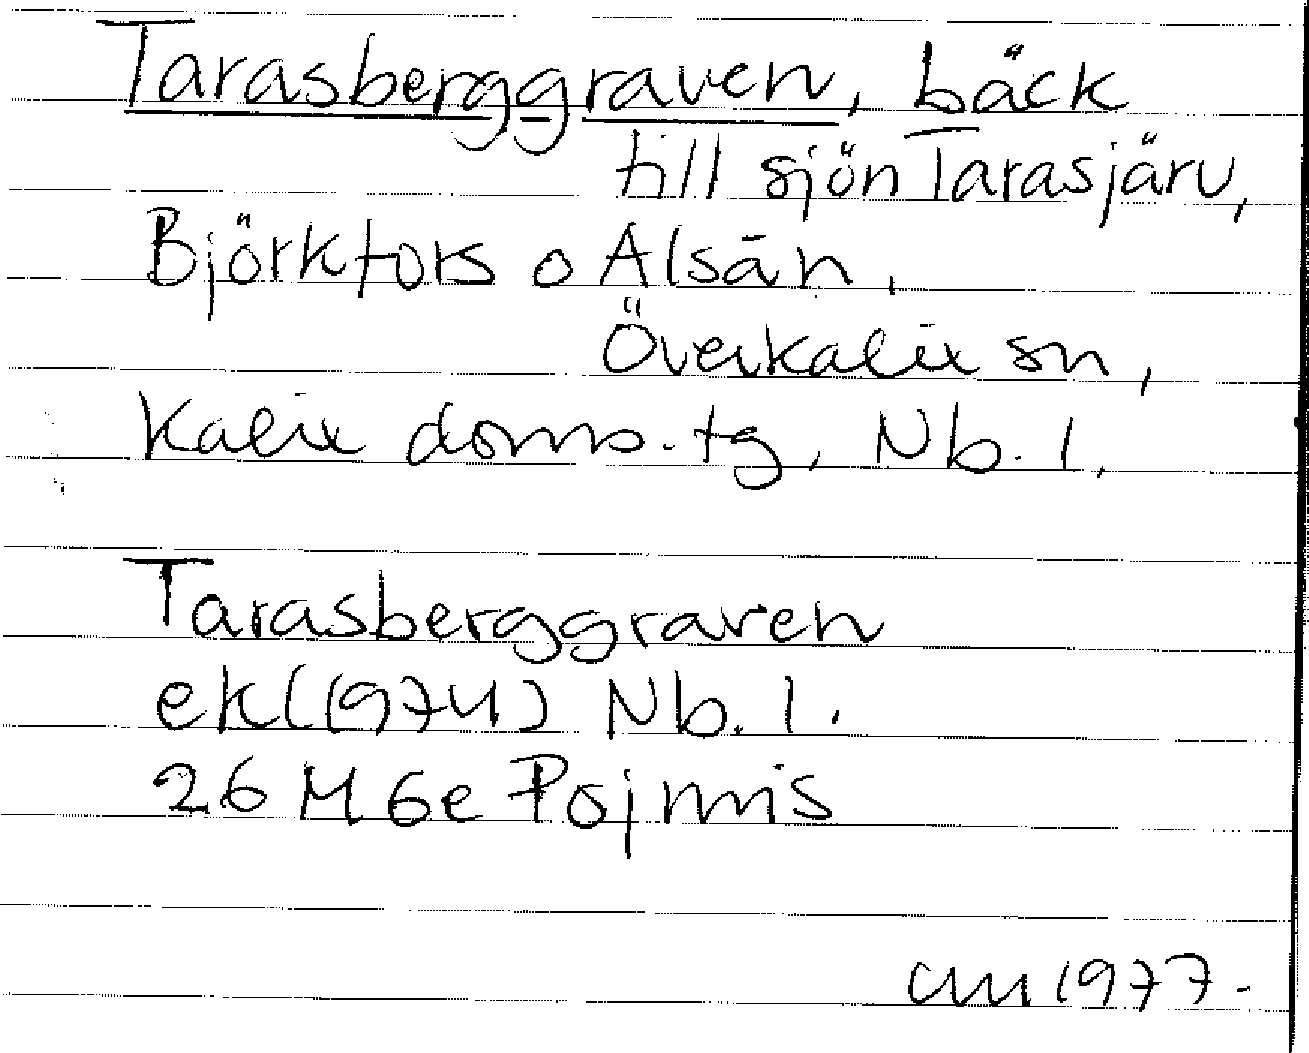 Tarasberggraven, bäck
till sjön Tarasjärv,
Björkfors o Alsån,
Överkalix sn,
Kalix doms. tg, Nb. l.
Tarasberggraven
ek (1974) Nb. l.
26 M 6e Pojnis
1977.